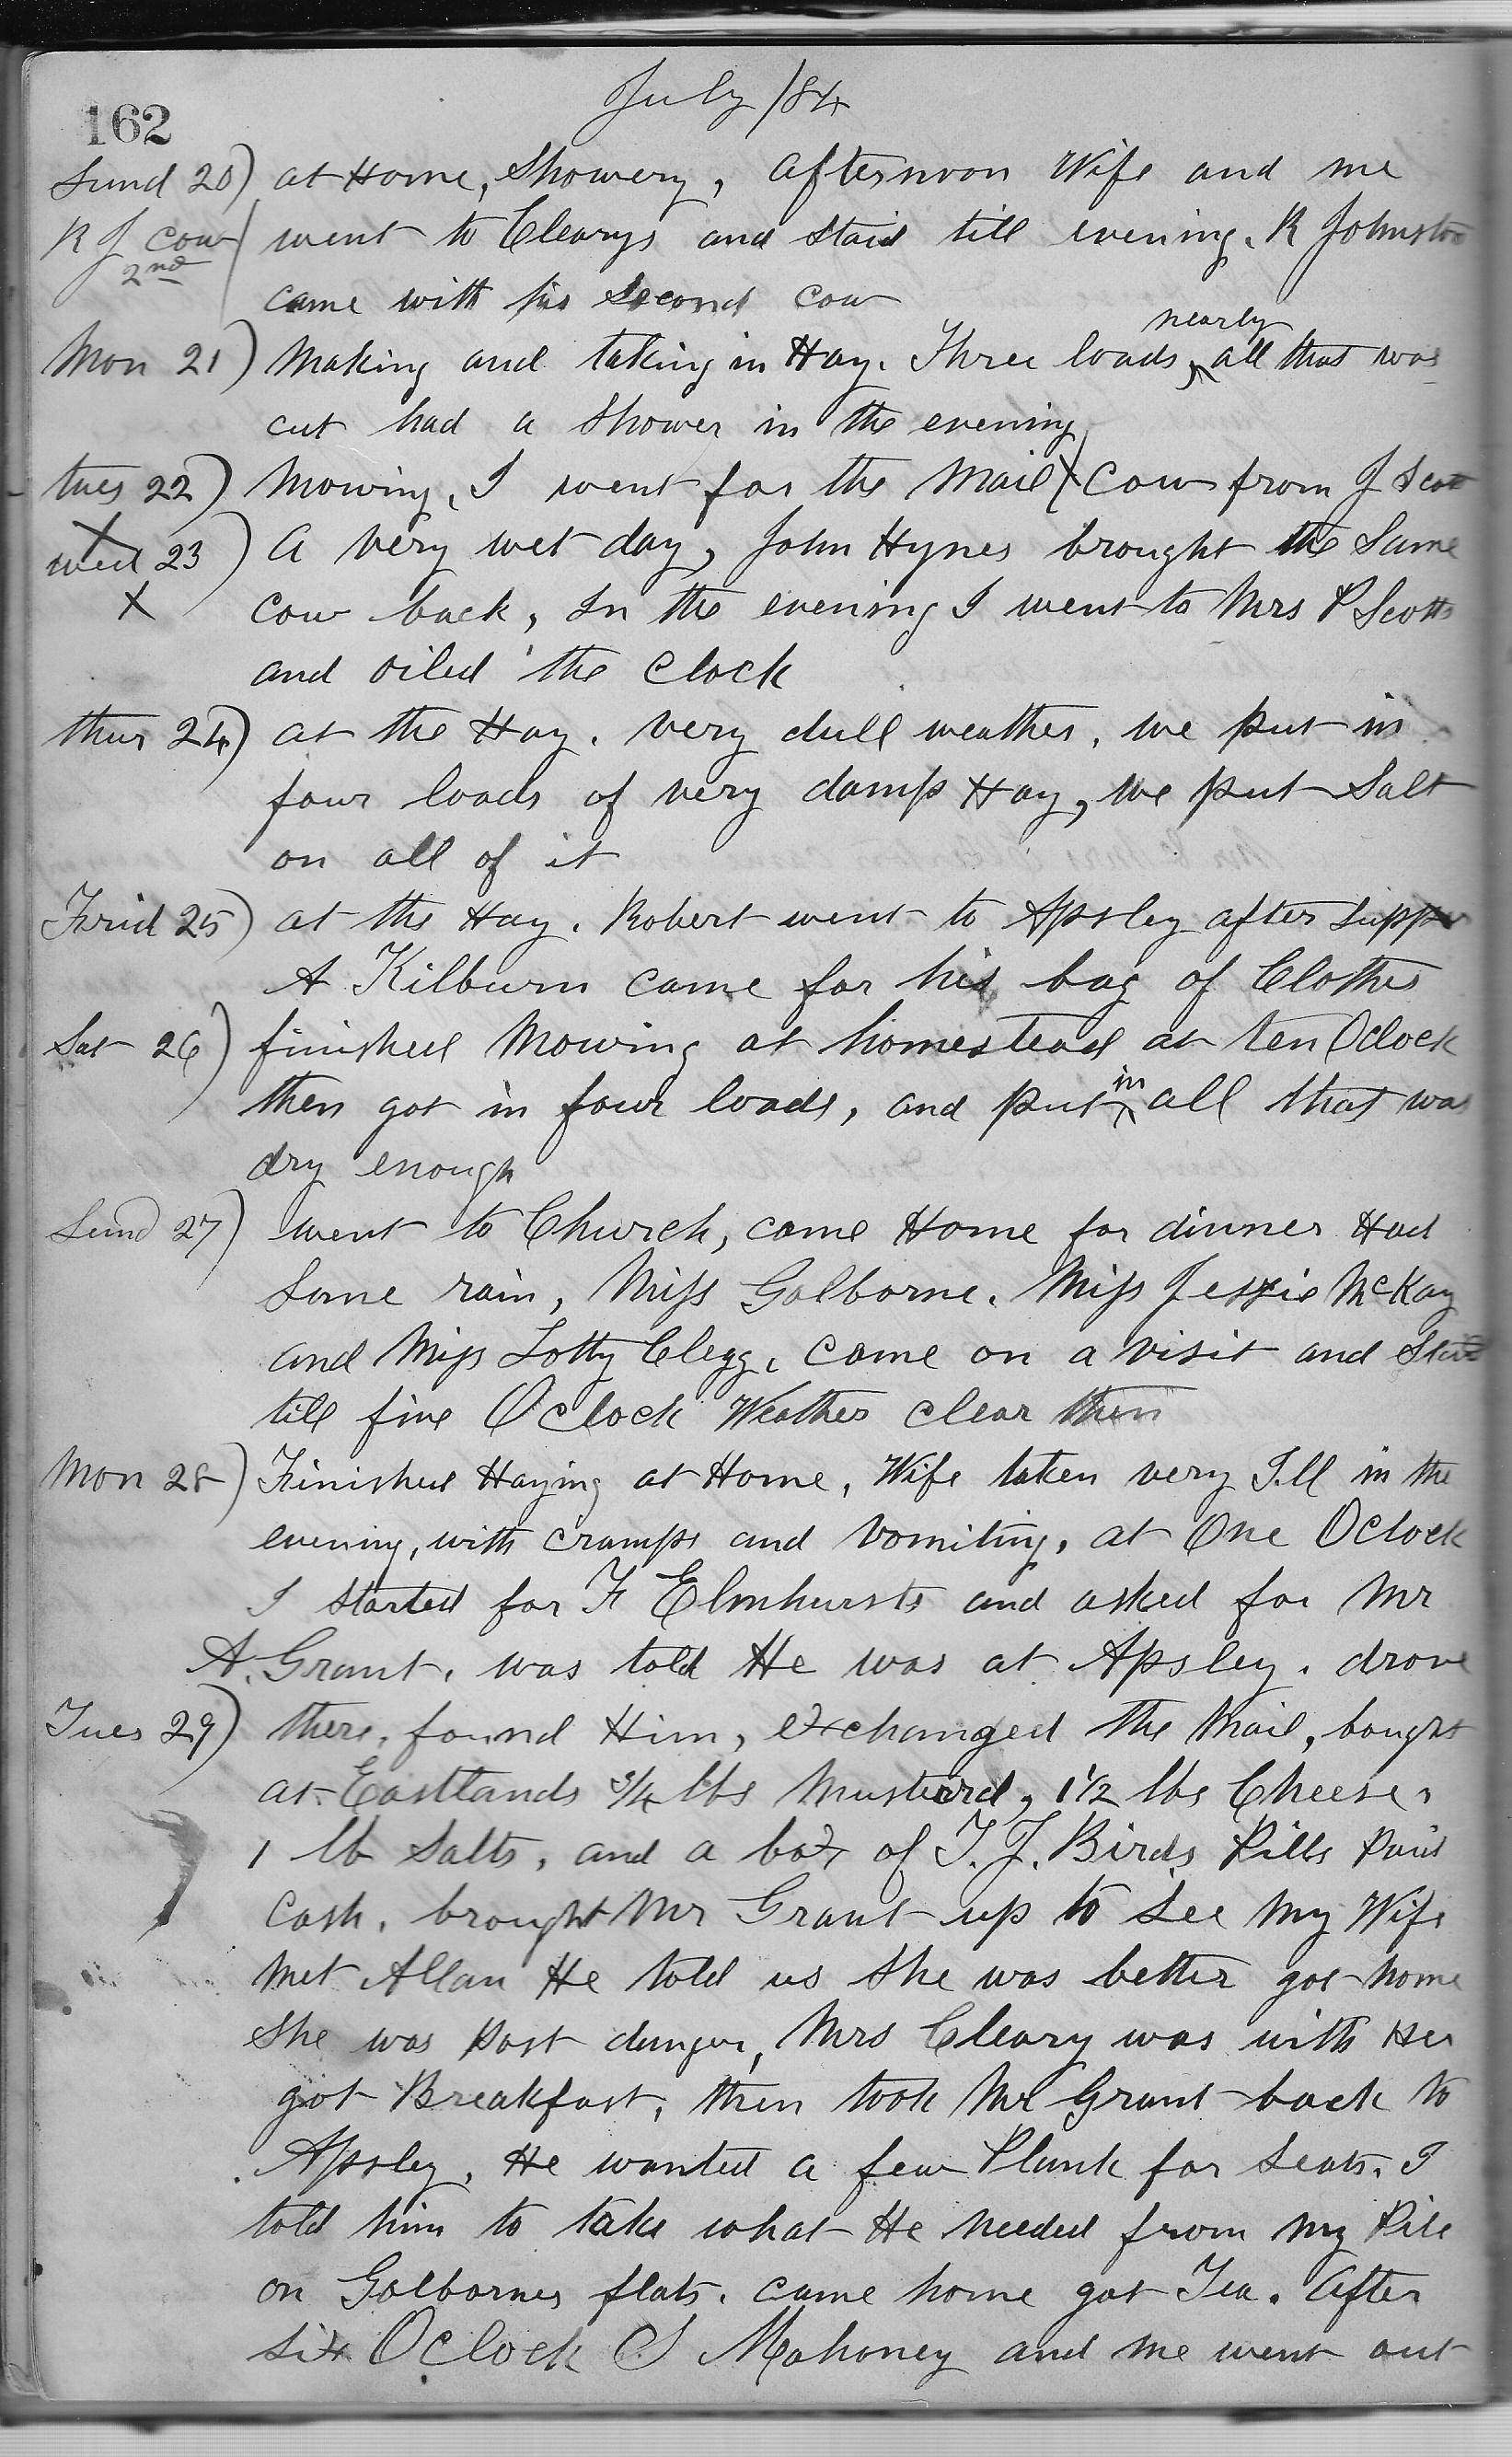 162
July /84
Sund 20) at Home, Showery, afternoon Wife and me
R J cow 2nd went to Clearys and Staid till evening. R Johnston
came with his Second cow
Mon 21) Making and taking in Hay. Three loads, nearly all that was
cut had a Shower in the evening
tues 22) Mowing, I went for the Mail X Cow from J Scott
X
wed 23) A very wet day, John Hynes brought the Same
X cow back, In the evening I went to Mrs P Scotts
and oiled the Clock
thur 24) at the Hay. very dull weather, we put in
four loads of very damp Hay, we put Salt
on all of it
Frid 25) at the Hay. Robert went to Apsley after supper
A Kilburn came for his bag of Clothes
Sat 26) finished Mowing at homestead at ten Oclock
then got in four loads, and put in all that was
dry enough
Sund 27) went to Church, came Home for dinner Had
Some rain, Miss Golborne. Miss Jessie McKay
and Miss Lotty Clegg. came on a visit and Staid
till five Oclock Weather clear then
Mon 28) Finished Haying at Home, Wife taken very Ill in the
evening, with cramps and vomiting, at One Oclock
I started for F Elmhursts and asked for Mr
A. Grant. was told He was at Apsley. drove
Tues 29) there, found Him, exchanged the Mail, bought
at Eastlands 3/4 lbs Mustard, 1 1/2 lbs Cheese,
1 lb Salts, and a box of T. J. Birds Pills Paid
Cash. brought Mr Grant up to See My Wife
Met Allan He told us She was better got home
She was past danger, Mrs Cleary was with Her
got Breakfast, then took Mr Grant back to
Apsley. He wanted a few Plank for Seats. I
told him to take what He needed from My Pile
on Golbornes flats. came home got Tea. After
Six Oclock C Mahoney and me went out